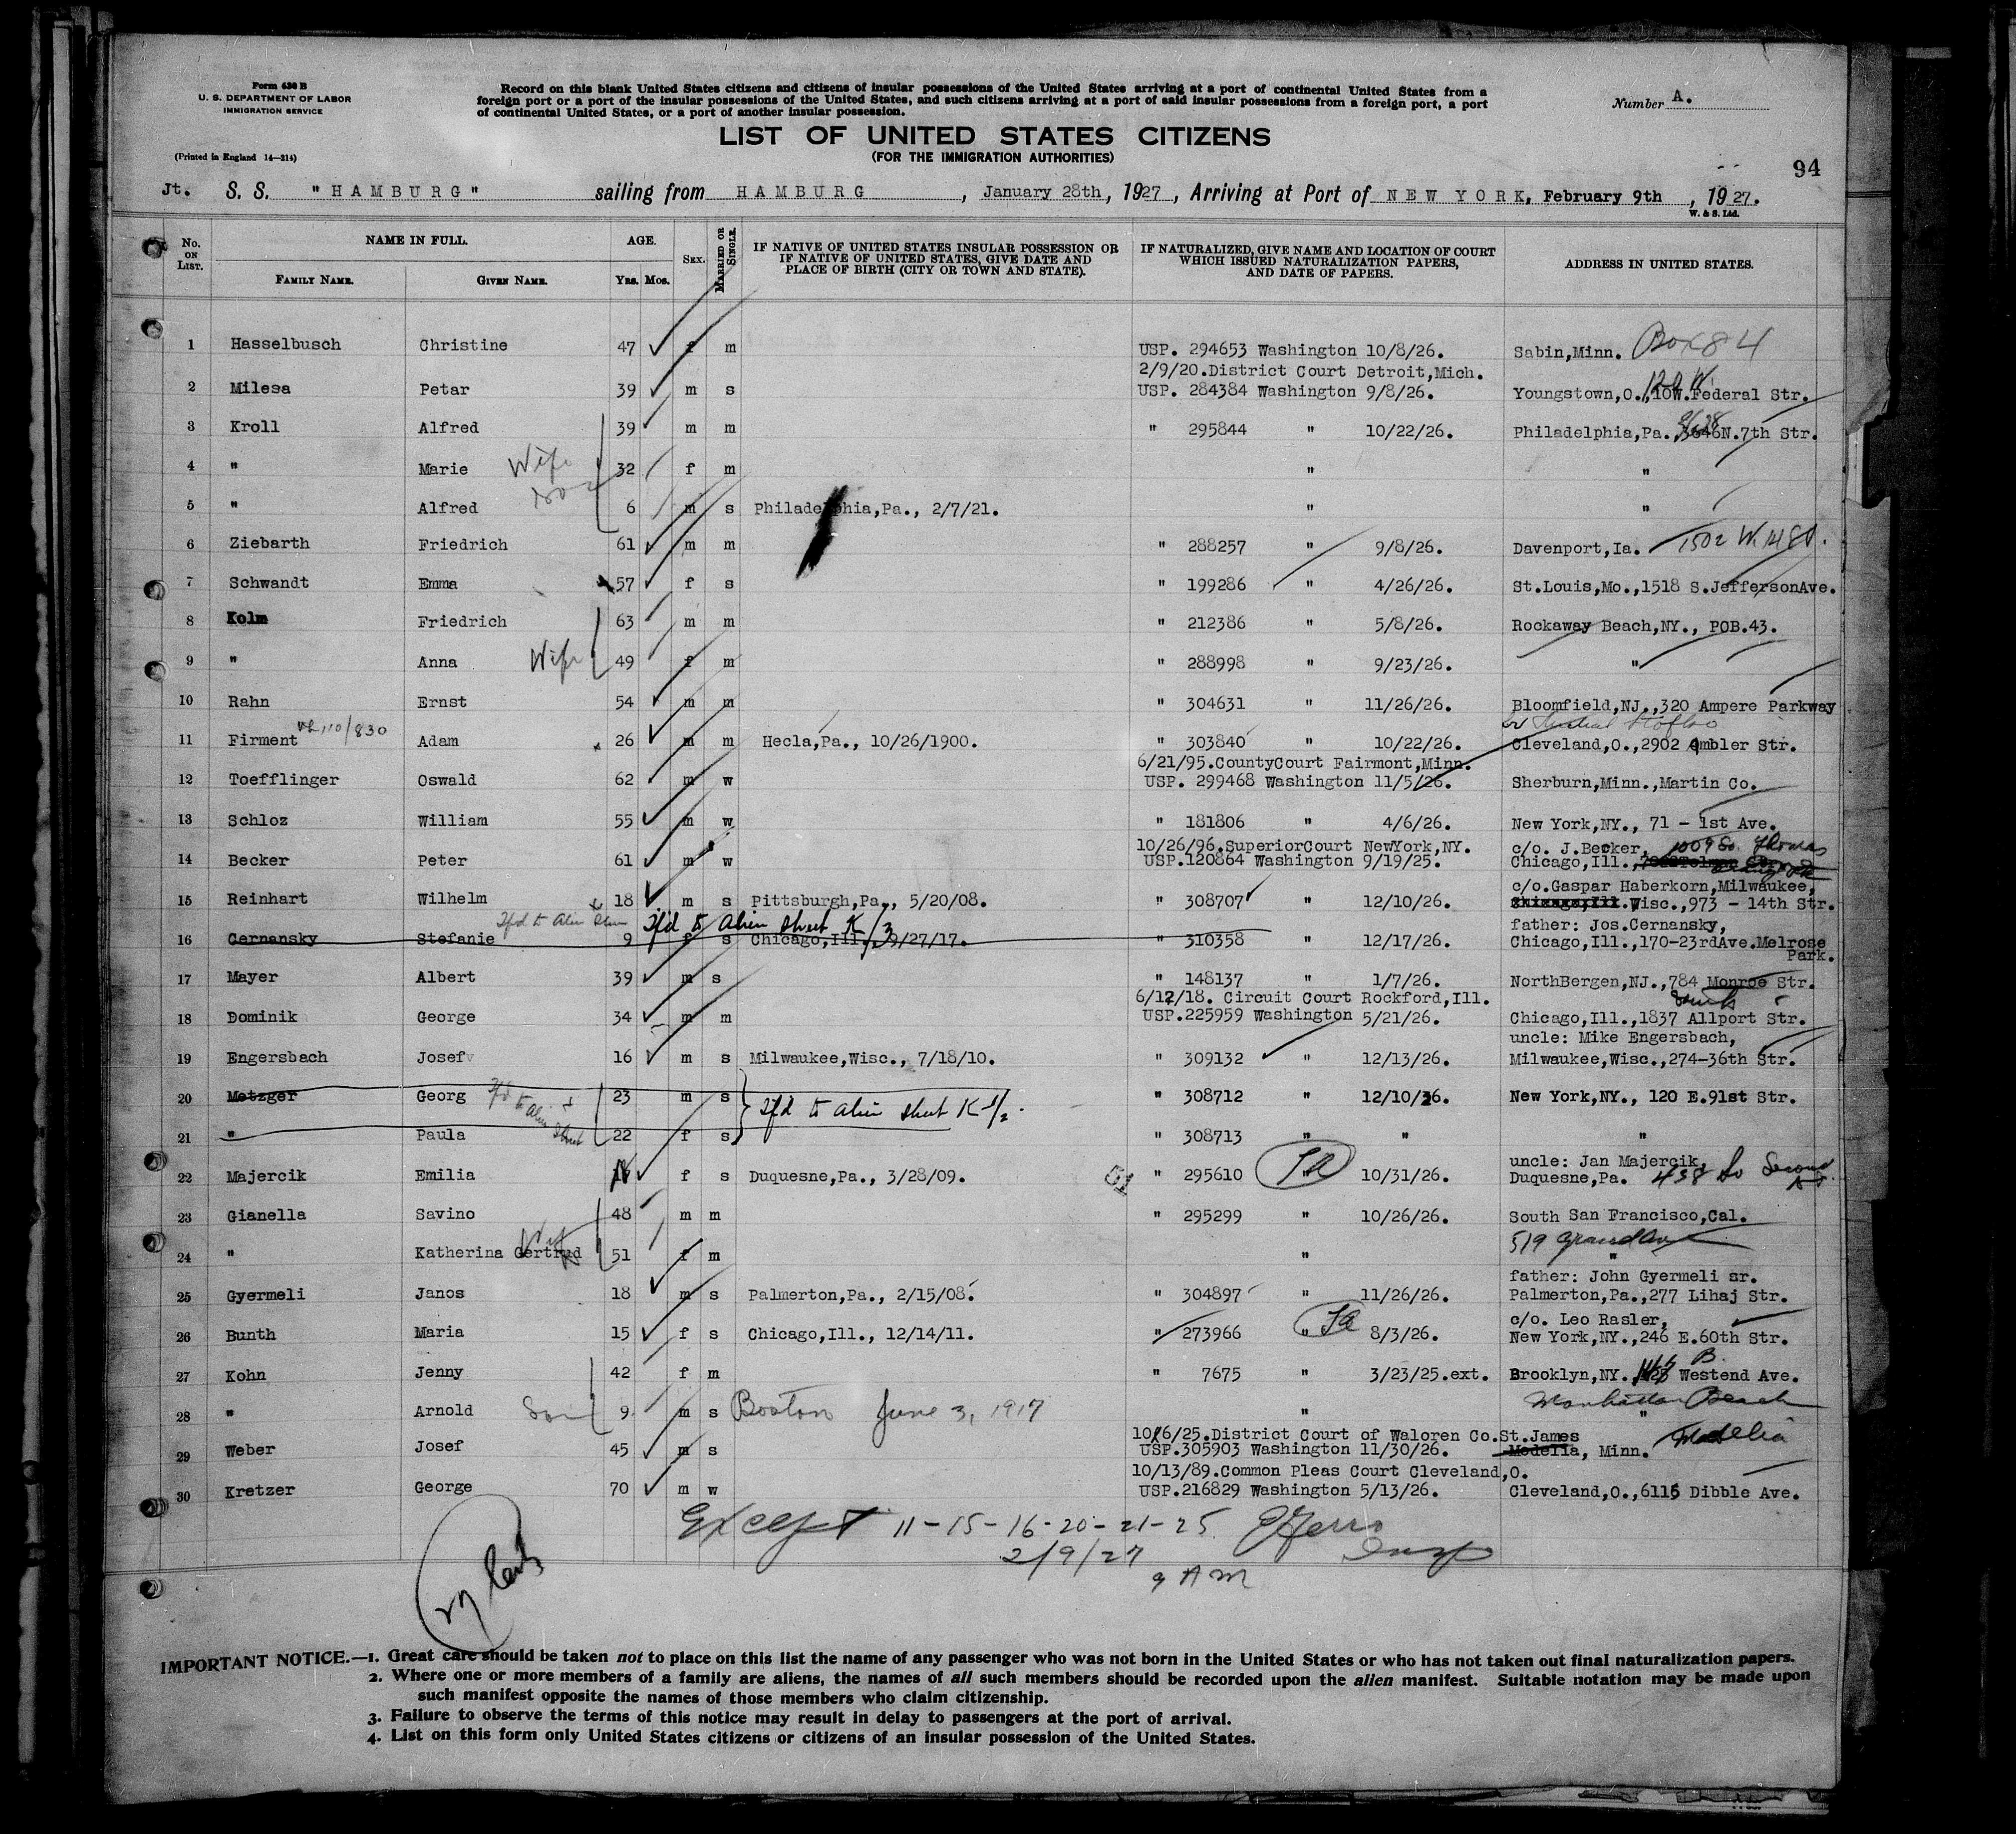 Form 630 B
U. S. DEPARTMENT OF LABOR
IMMIGRATION SERVICE
(Printed in England 14—214)
Record on this blank United States citizens and citizens of insular possessions of the United States arriving at a port of continental United States from a
foreign port or a port of the insular possessions of the United States, and such citizens arriving at a port of said insular possessions from a foreign port, a port
of continental United States, or a port of another insular possession.
Number A.
LIST OF UNITED STATES CITIZENS
(FOR THE IMMIGRATION AUTHORITIES)
94
Jt. S. S. "HAMBURG" sailing from HAMBURG, January 28th, 1927, Arriving at Port of NEW YORK, February 9th, 1927.
W. & S. Ltd.
No. ON LIST. NAME IN FULL. AGE. SEX. MARRIED OR SINGLE. IF NATIVE OF UNITED STATES INSULAR POSSESSION OR IF NATIVE OF UNITED STATES, GIVE DATE AND PLACE OF BIRTH (CITY OR TOWN AND STATE). IF NATURALIZED, GIVE NAME AND LOCATION OF COURT WHICH ISSUED NATURALIZATION PAPERS, AND DATE OF PAPERS. ADDRESS IN UNITED STATES.
FAMILY NAME. GIVEN NAME. YRS. MOS.
1 Hasselbusch Christine 47 f m USP. 294653 Washington 10/8/26. Sabin,Minn. Box 84
2/9/20.District Court Detroit,Mich.
2 Milesa Petar 39 m s USP. 284384 Washington 9/8/26. Youngstown,O.,10W.Federal Str. 122 W.
3 Kroll Alfred 39 m m " 295844 " 10/22/26. Philadelphia,Pa.,3646N.7th Str.
4 " Marie Wife 32 f m " "
5 " Alfred 6 m s Philadelphia,Pa., 2/7/21. " "
6 Ziebarth Friedrich 61 m m " 288257 " 9/8/26. Davenport,Ia. 1502 W. 14 St.
7 Schwandt Emma 57 f s " 199286 " 4/26/26. St.Louis,Mo.,1518 S.JeffersonAve.
8 Kolm Friedrich 63 m m " 212386 " 5/8/26. Rockaway Beach,NY., POB.43.
9 " Anna Wife 49 f m " 288998 " 9/23/26. "
10 Rahn Ernst 54 m m " 304631 " 11/26/26. Bloomfield,NJ.,320 Ampere Parkway
110/830
11 Firment Adam 26 m m Hecla,Pa., 10/26/1900. " 303840 " 10/22/26. Cleveland,O.,2902 Ambler Str.
6/21/95.CountyCourt Fairmont,Minn.
12 Toefflinger Oswald 62 m w USP. 299468 Washington 11/5/26. Sherburn,Minn.,Martin Co.
13 Schloz William 55 m w " 181806 " 4/6/26. New York,NY., 71 - 1st Ave.
10/26/96.SuperiorCourt NewYork,NY. c/o. J.Becker, Thomas
14 Becker Peter 61 m w USP.120864 Washington 9/19/25. Chicago,Ill.,
c/o.Gaspar Haberkorn,Milwaukee,
15 Reinhart Wilhelm 18 m s Pittsburgh,Pa., 5/20/08. " 308707 " 12/10/26. Chicago,Ill. Wisc.,973 - 14th Str.
Tfd to Alien Sheet Tfd to Alien Sheet K/3 father: Jos.Cernansky,
16 Cernansky Stefanie 9 f s Chicago,Ill., 9/27/17. " 310358 " 12/17/26. Chicago,Ill.,170-23rdAve.Melrose
Park.
17 Mayer Albert 39 m s " 148137 " 1/7/26. NorthBergen,NJ.,784 Monroe Str.
6/12/18. Circuit Court Rockford,Ill.
18 Dominik George 34 m m USP.225959 Washington 5/21/26. Chicago,Ill.,1837 Allport Str.
uncle: Mike Engersbach,
19 Engersbach Josef 16 m s Milwaukee,Wisc., 7/18/10. " 309132 " 12/13/26. Milwaukee,Wisc.,274-36th Str.
20 Metzger Georg Tfd to Alien Sheet 23 m s Tfd to Alien Sheet K 1/2. " 308712 " 12/10/26. New York,NY., 120 E.91st Str.
21 " Paula 22 f s " 308713 " " "
uncle: Jan Majercik,
22 Majercik Emilia f s Duquesne,Pa., 3/28/09. 51 " 295610 " 10/31/26. Duquesne,Pa. 438 So Second
23 Gianella Savino 48 m m " 295299 " 10/26/26. South San Francisco,Cal.
519 Grand Ave
24 " Katherina Gertrud 51 f m " "
father: John Gyermeli sr.
25 Gyermeli Janos 18 m s Palmerton,Pa., 2/15/08. " 304897 " 11/26/26. Palmerton,Pa.,277 Lihaj Str.
c/o. Leo Rasler,
26 Bunth Maria 15 f s Chicago,Ill., 12/14/11. " 273966 " 8/3/26. New York,NY.,246 E.60th Str.
27 Kohn Jenny 42 f m " 7675 " 3/23/25.ext. Brooklyn,NY. Westend Ave.
Manhattan Beach
28 " Arnold Son 9 m s Boston June 3, 1917 " "
10/6/25.District Court of Waloren Co.St.James
29 Weber Josef 45 m s USP.305903 Washington 11/30/26. Medelia, Minn. Madelia
10/13/89.Common Pleas Court Cleveland,O.
30 Kretzer George 70 m w USP.216829 Washington 5/13/26. Cleveland,O.,6115 Dibble Ave.
Except 11-15-16-20-21-25
Insp
2/9/27
9 AM
IMPORTANT NOTICE.—1. Great care should be taken not to place on this list the name of any passenger who was not born in the United States or who has not taken out final naturalization papers.
2. Where one or more members of a family are aliens, the names of all such members should be recorded upon the alien manifest. Suitable notation may be made upon
such manifest opposite the names of those members who claim citizenship.
3. Failure to observe the terms of this notice may result in delay to passengers at the port of arrival.
4. List on this form only United States citizens or citizens of an insular possession of the United States.